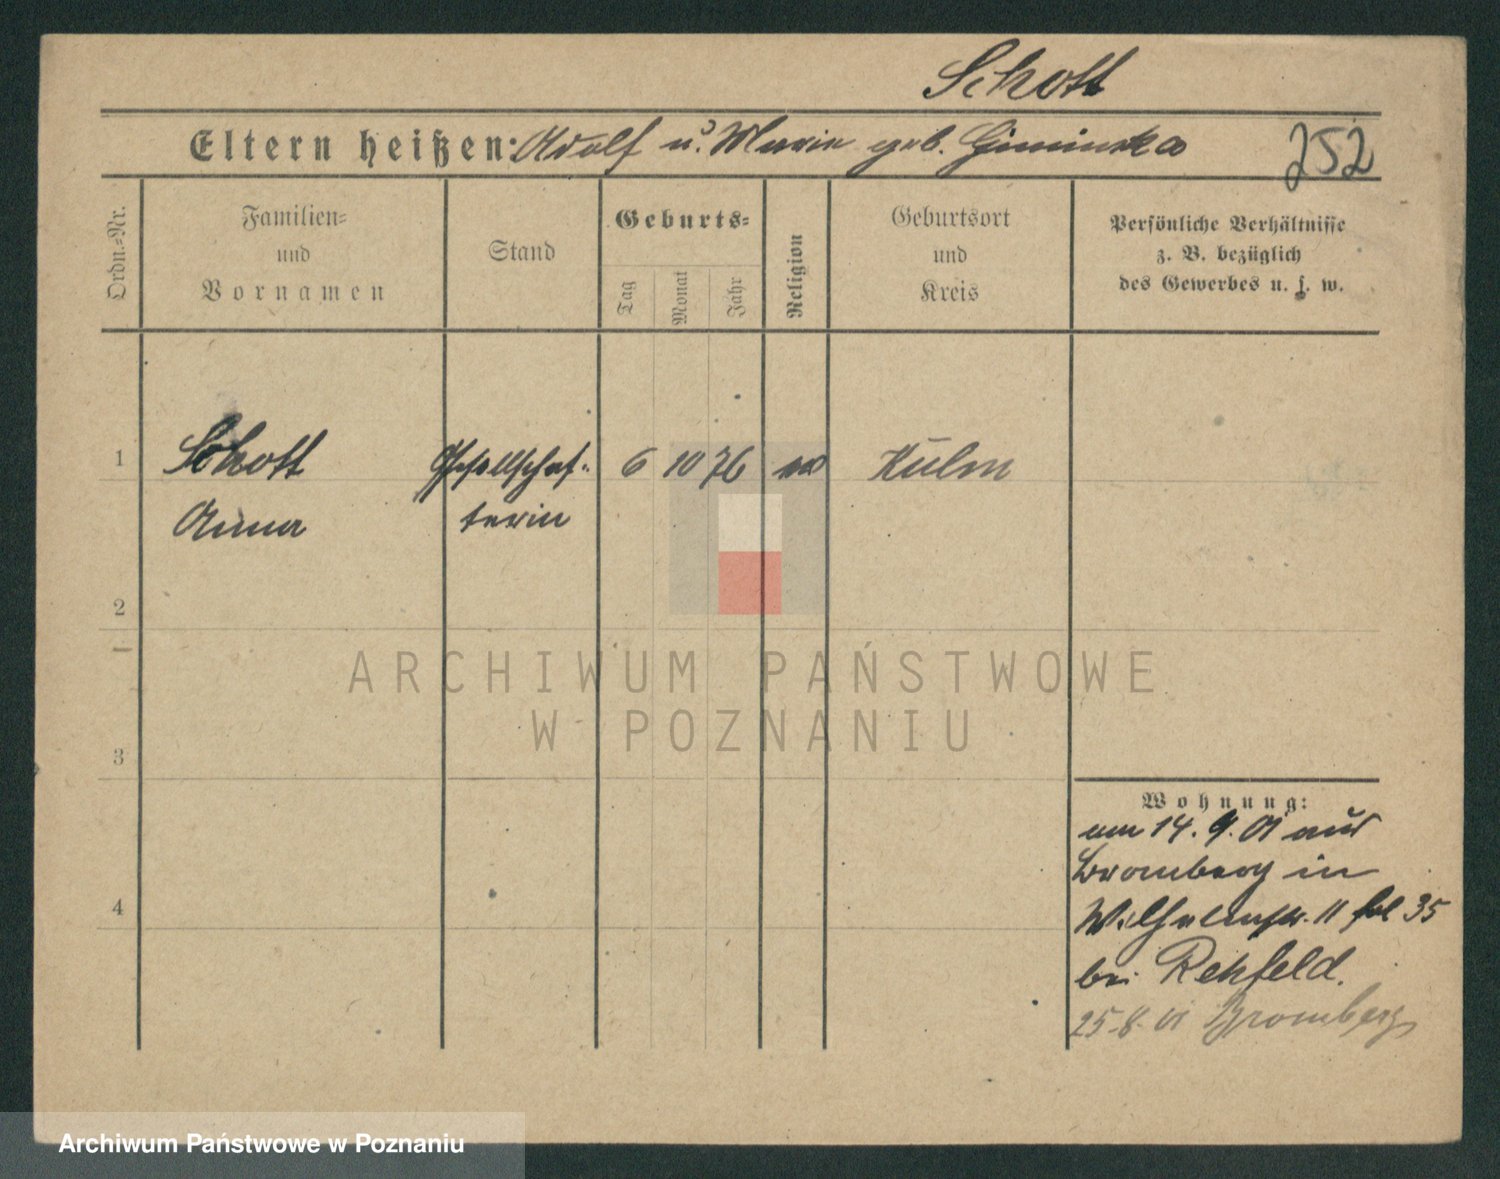 Schott
Eltern heißen: Adolf u. Marie geb.
252
Ordn.=Nr.
Familien=
und
Vornamen
Stand
Geburts=
Tag
Monat
Jahr
Religion
Geburtsort
und
Kreis
Persönliche Verhältnisse
z. B. bezüglich
des Gewerbes u. s. w.
1
Schott
Anna
Gesellschaf-
terin
6 10 76
Kulm
2
3
4
Wohnung:
am 14. 9. 01 aus
Bromberg in
Wilhelmstr. 11 fol 35
bei Rehfeld.
25.8.01 Bromberg
ARCHIWUM PAŃSTWOWE
W POZNANIU
Archiwum Państwowe w Poznaniu